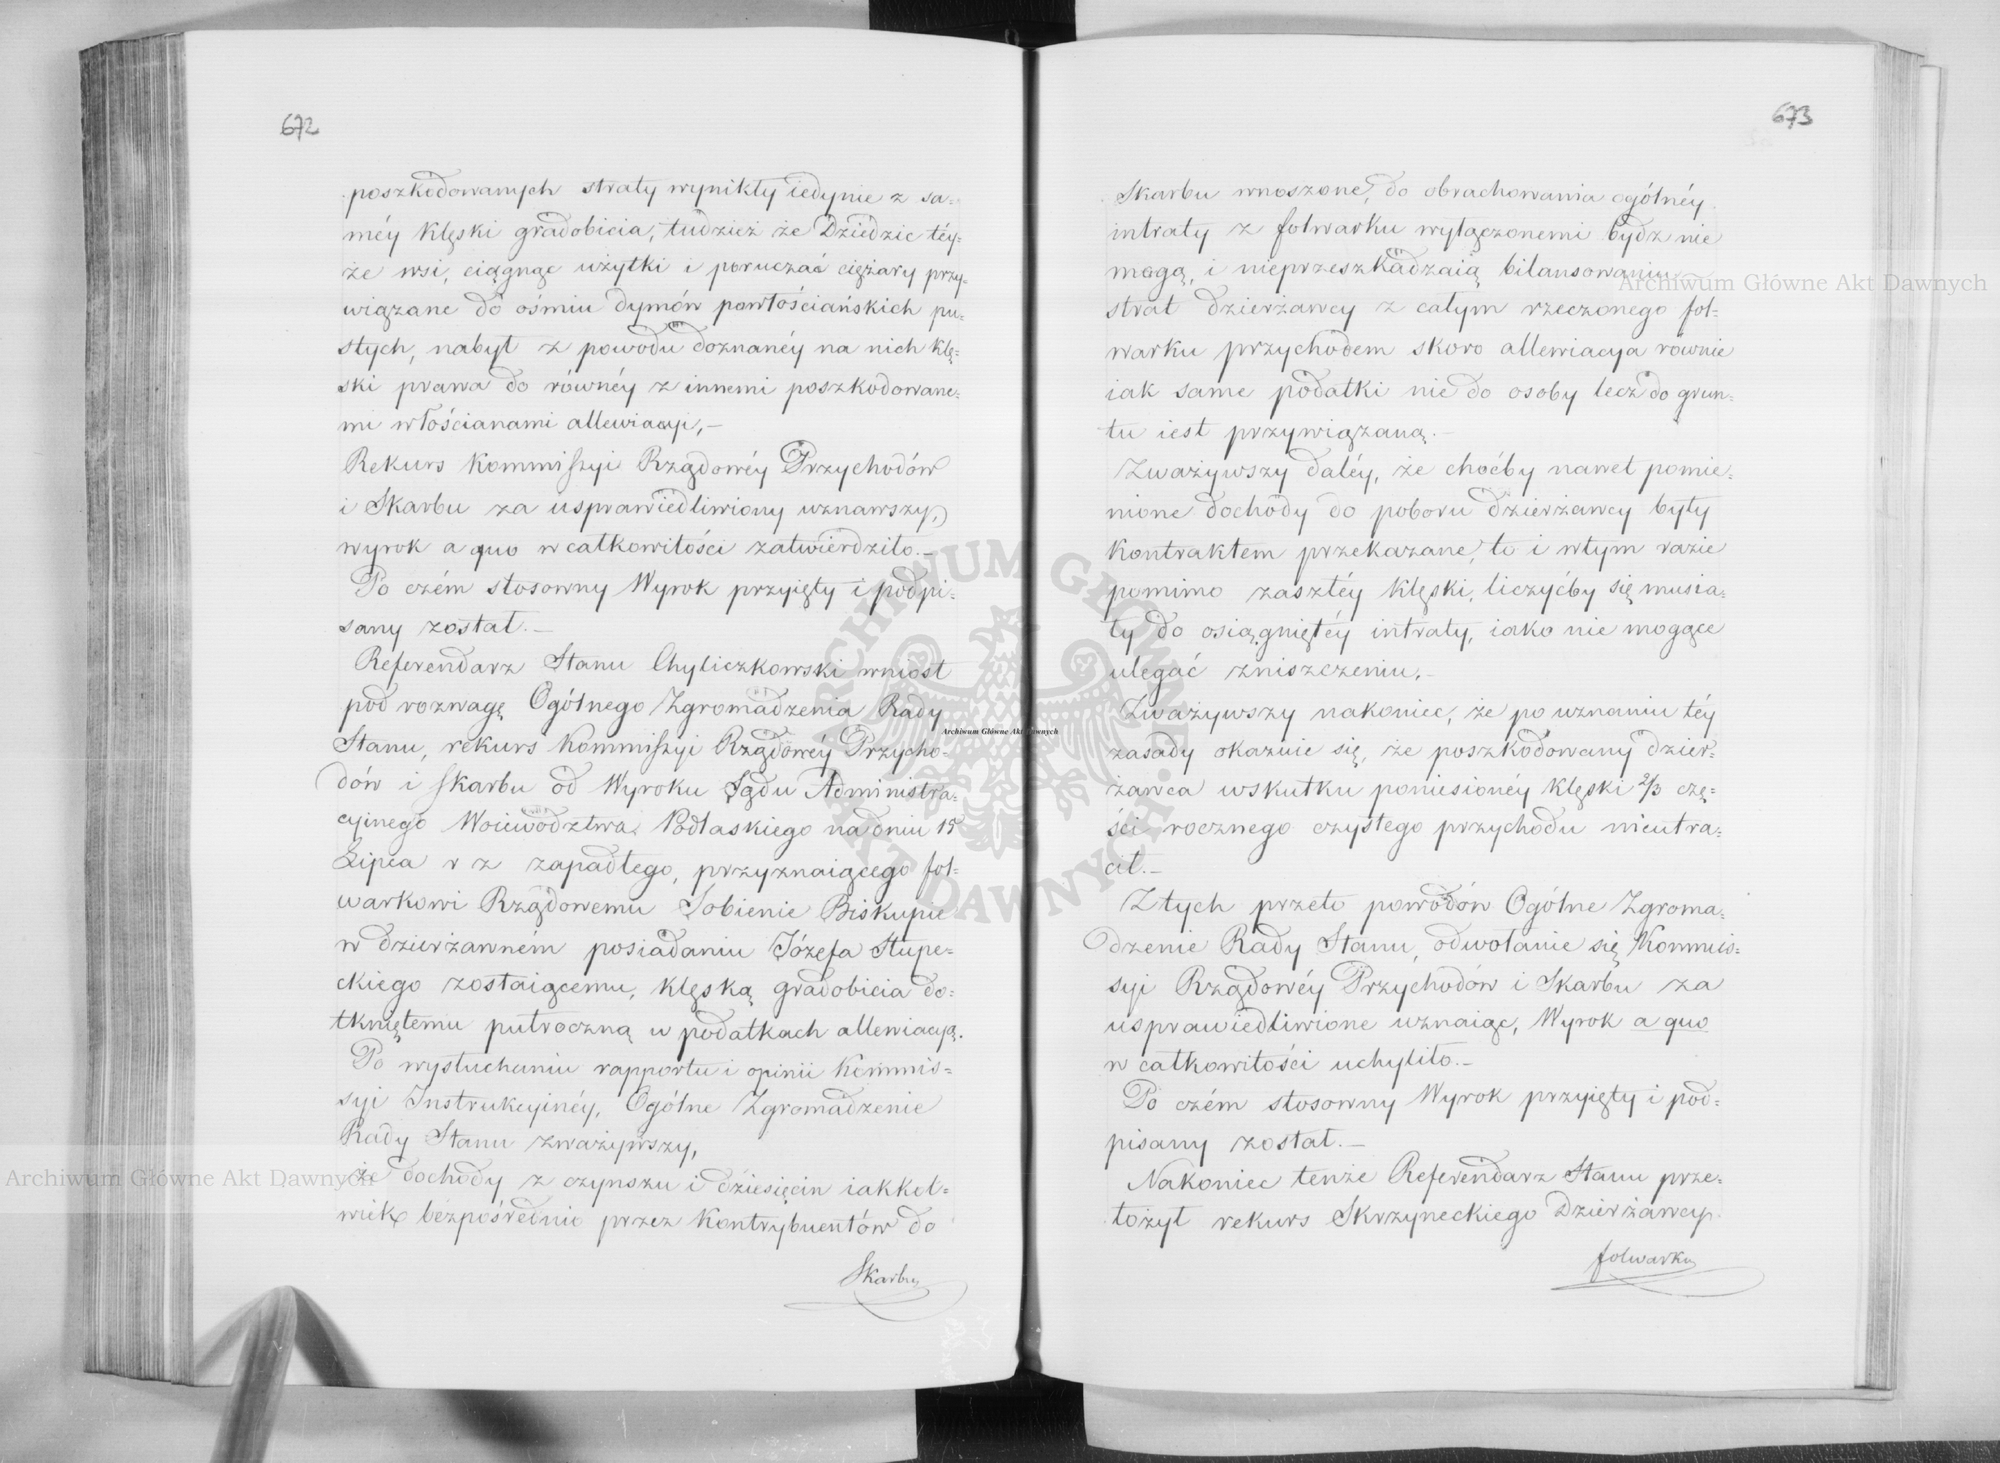 672
poszkodowanych straty wynikły iedynie z sa=
méy klęski gradobicia, tudzież że Dziedzic téy=
że wsi, ciągnąc użytki i ciężary przy=
wiązane do ośmiu dymów powłościańskich pu=
stych, nabył z powodu doznanéy na nich klę=
ski prawa do równéy z innemi poszkodowane=
mi włościanami allewiacyi,—
Rekurs Kommissyi Rządowéy Przychodów
i Skarbu za usprawiedliwiony uznawszy,
wyrok a quo w całkowitości zatwierdziło.—
Po czém stosowny Wyrok przyięty i podpi=
sany został.—
Referendarz Stanu Chyliczkowski wniosł
pod rozwagę Ogólnego Zgromadzenia Rady
Stanu, rekurs Kommissyi Rządowéy Przycho=
dów i Skarbu od Wyroku Sądu Administra=
cyinego Woiewództwa Podlaskiego na dniu 15
Lipca r z zapadłego, przyznaiącego fol=
warkowi Rządowemu Łobienie Biskupie
w dzierżawném posiadaniu Józefa Stupe=
ckiego zostaiącemu, klęską gradobicia do=
tkniętemu putroczną w podatkach allewiacyą.
Po wysłuchaniu rapportu i opinii Kommis=
syi Instrukcyinéy, Ogólne Zgromadzenie
Rady Stanu zważywszy,
że dochody z czynszu i dziesięcin iakkol=
wiek bezpośrednio przez Kontrybuentów do
Skarbu
673
Skarbu wnoszone, do obrachowania ogólnéy
intraty z folwarku wyłączonemi bydz nie
mogą, i nieprzeszkadzaią bilansowaniu
strat dzierżawcy z całym rzeczonego fol=
warku przychodem skoro allewiacya równie
iak same podatki nie do osoby lecz do grun=
tu iest przywiązaną.—
Zważywszy daléy, że choćby nawet pomie=
nione dochody do poboru dzierżawcy były
Kontraktem przekazane, to i wtym razie
pomimo zaszłéy klęski, liczyćby się musia=
ły do osiągniętéy intraty, iako nie mogące
ulegać zniszczeniu.—
Zważywszy nakoniec, że po uznaniu téy
zasady okazuie się, że poszkodowany dzier=
żawca wskutku poniesionéy klęski 2/3 czę=
ści rocznego czystego przychodu nieutra=
cił.—
Z tych przeto powodów Ogólne Zgroma=
dzenie Rady Stanu, odwołanie się Kommis=
syi Rządowéy Przychodów i Skarbu za
usprawiedliwione uznaiąc, Wyrok a quo
w całkowitości uchyliło.—
Po czém stosowny Wyrok przyięty i pod=
pisany został.—
Nakoniec tenże Referendarz Stanu prze=
łożył rekurs Skrzyneckiego Dzierżawcy
folwarku
Archiwum Główne Akt Dawnych
Archiwum Główne Akt Dawnych
Archiwum Główne Akt Dawnych
ARCHIWUM GŁÓWNE AKT DAWNYCH